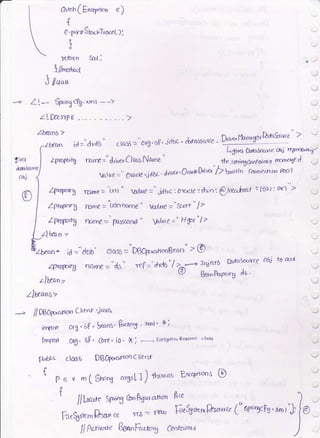 catch (Exception e)
{
e.printStackTrace();
}
return sal;
} //method
} //class
→ <!-- Spring Cfg.xml -->
<!DOCTYPE - - - - - - - - - >
<beans>
<bean id="drds" class="org.sf.jdbc.datasource.DriverManagerDataSource">
gives datasource obj
<property name="driverClassName"
value="oracle.jdbc.driver.OracleDriver"/>
<property name="url" value="jdbc:oracle:thin:@localhost:1521:orcl">
<property name="username" value="scott"/>
<property name="password" value="tiger"/>
</bean>
<bean id="dbib" class="DBOperationBean">
<property name="ds" ref="drds"/> → Injects DataSource obj to our
BeanProperty ds.
</bean>
</beans>
→ //DBOperationClient.java
import org.sf.beans.factory.xml.*;
import org.sf.core.io.*; → FileSystem Resource class
public class DBOperationClient
{
P s v m(String args[]) throws Exceptions
{
//Locate Spring Configuration file
FileSystemResource res = new FileSystemResource("springcfg.xml");
//Activate BeanFactory Container